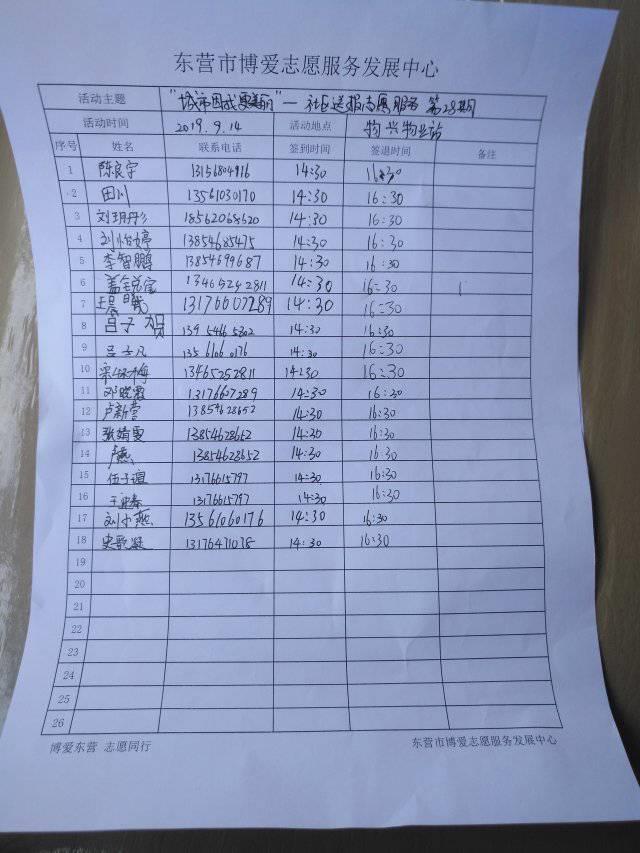 东营市博爱志愿服务发展中心
活动主题 "城市因我更美丽"— 社区送报志愿服务 第28期
活动时间 2019.9.14 活动地点 物兴物业站
序号 姓名 联系电话 签到时间 签退时间 备注
1 陈良宇 13156804916 14:30 16:30
2 田川 13561030170 14:30 16:30
3 刘玥彤 18562068620 14:30 16:30
4 刘怡婷 13854685475 14:30 16:30
5 李智鹏 13854699687 14:30 16:30
6 14:30 16:30
7 13176607289 14:30 16:30
8 吕子 139 5465 5802 14:30 16:30
9 吕子凡 135 6106 0176 14:30 16:30
10 13465252811 14:30 16:30
11 邓晓霞 13176607289 14:30 16:30
12 卢新萱 13854628652 14:30 16:30
13 张婧雯 13854628662 14:30 16:30
14 13854628652 14:30 16:30
15 伍子 13176615797 14:30 16:30
16 13176615797 14:30 16:30
17 刘小燕 13561060176 14:30 16:30
18 史歌凝 13176471075 14:30 16:30
19
20
21
22
23
24
25
26
博爱东营 志愿同行 东营市博爱志愿服务发展中心